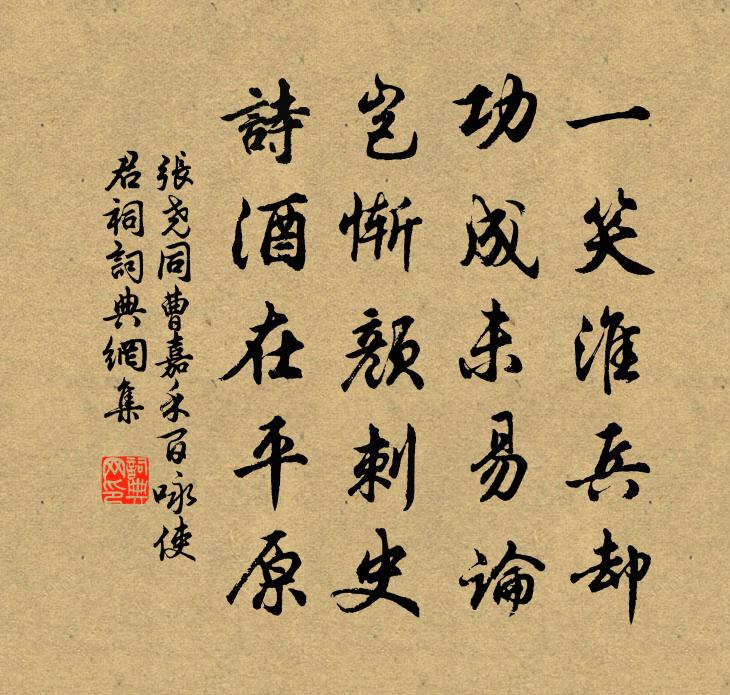 一笑淮兵却
功成未易論
岂惭顔刺史
詩酒在平原
張尧同曹嘉禾百咏使
君祠詞典網集
詞典
网印